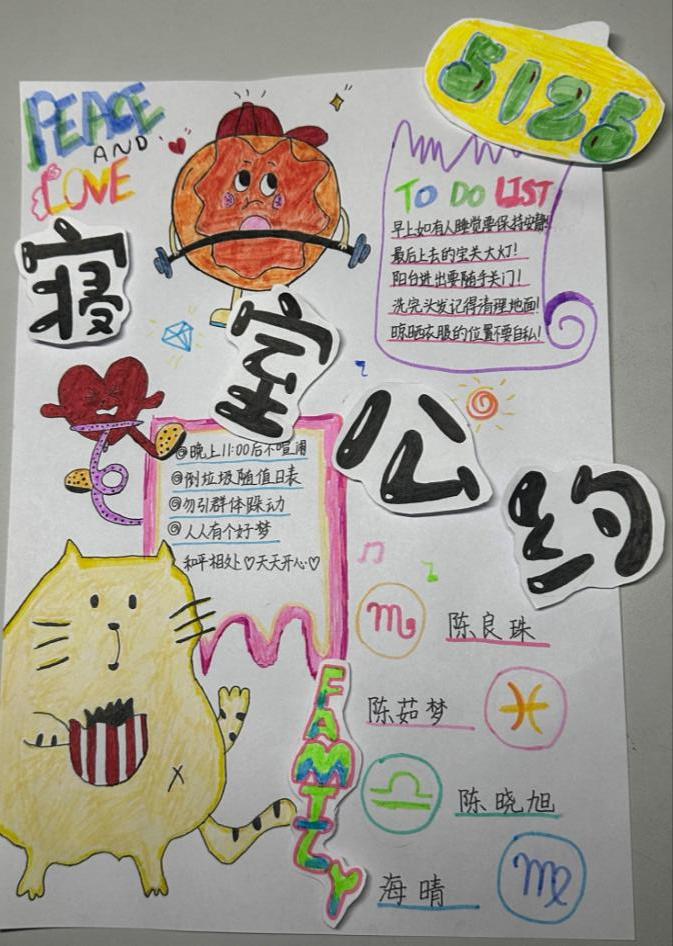 5125
PEACE
AND
LOVE
TO DO LIST
早上如有人睡觉要保持安静!
最后上去的宝关大灯!
阳台进出要随手关门!
洗完头发记得清理地面!
晾晒衣服的位置不要自私!
寝室公约
晚上11:00后不喧闹
倒垃圾随值日表
勿引群体跺动
人人有个好梦
和平相处♡天天开心♡
♏ 陈良珠
陈茹梦 ♓
♎ 陈晓旭
海晴 ♍
FAMILY